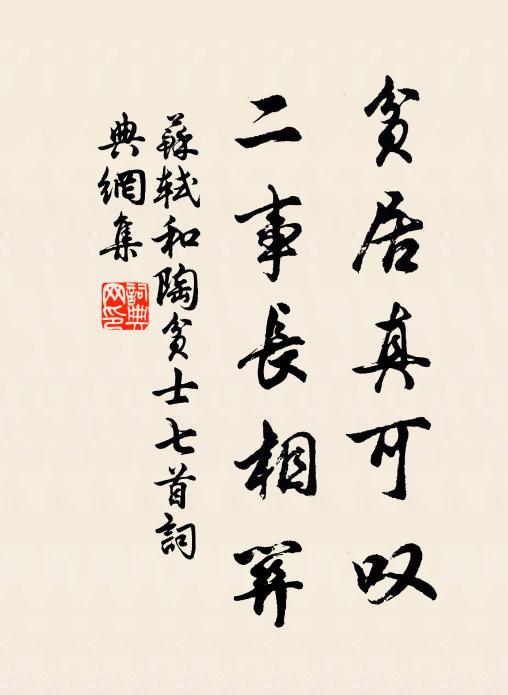 貧居真可叹
二事長相關
蘇軾和陶貧士七首詞
典網集
詞典
网印